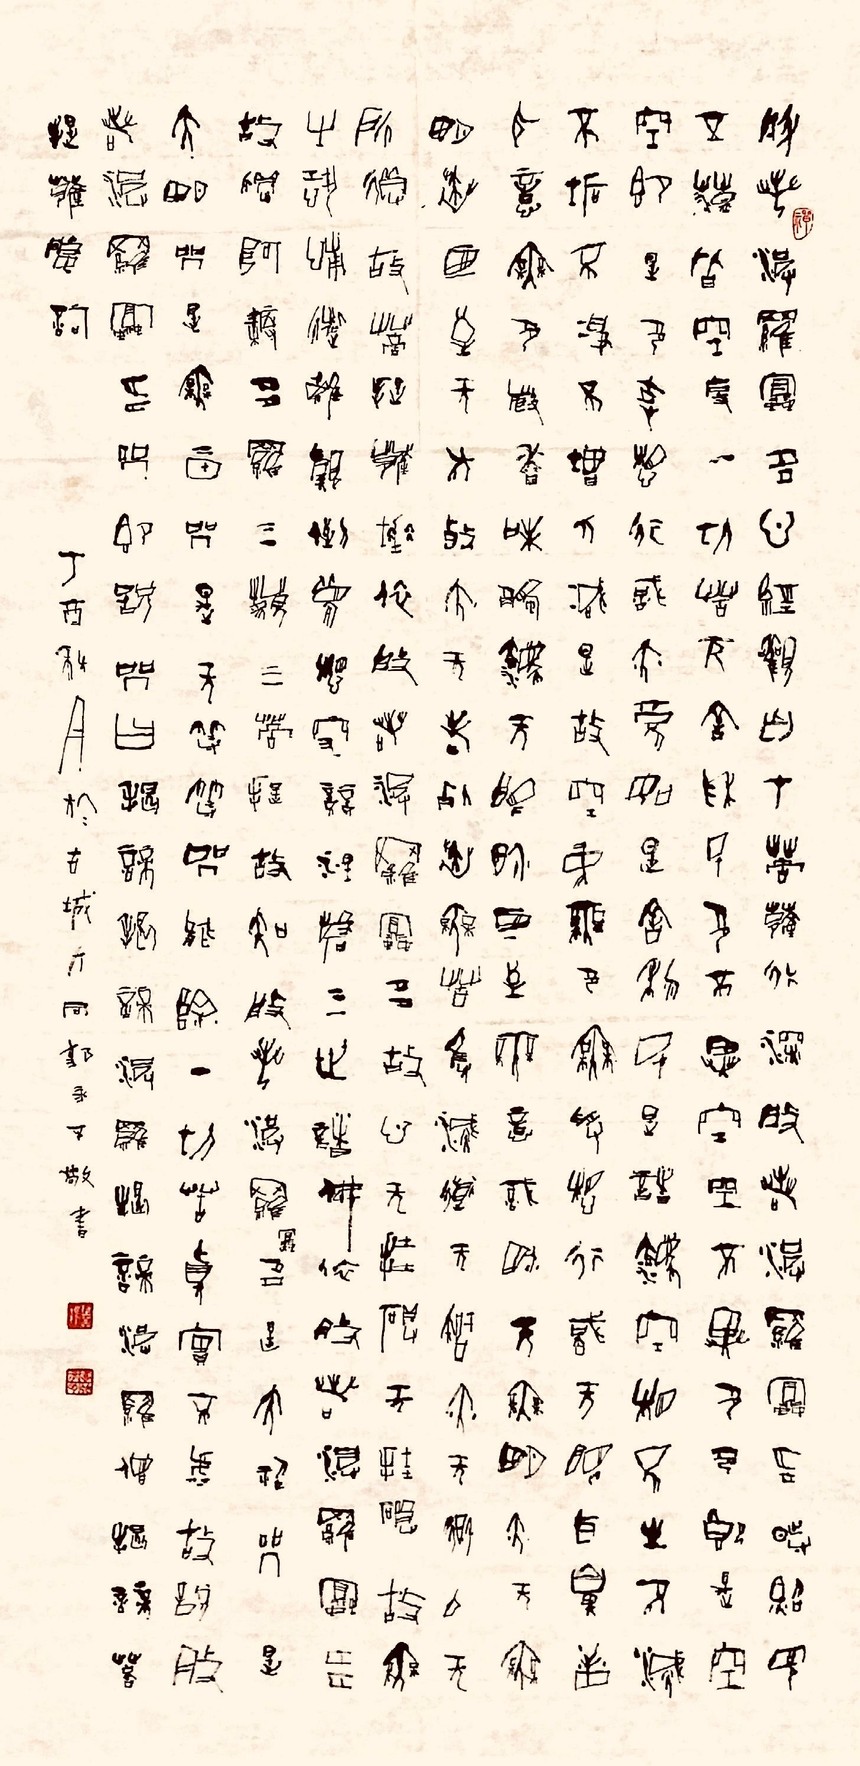 般若波羅蜜多心經觀自在菩薩行深般若波羅蜜多時照見
五蘊皆空度一切苦厄舍利子色不異空空不異色色即是空
空即是色受想行識亦復如是舍利子是諸法空相不生不滅
不垢不淨不增不減是故空中無色無受想行識無眼耳鼻舌
身意無色聲香味觸法無眼界乃至無意識界無無明亦無無
明盡乃至无老死亦无老死盡無苦集滅道无智亦无得以无
所得故菩提薩埵依般若波羅蜜多故心无罣礙无罣礙故無
有恐怖遠離顛倒夢想究竟涅槃三世諸佛依般若波羅蜜多
故得阿耨多羅三藐三菩提故知般若波羅蜜多是大神咒是
大明咒是無上咒是无等等咒能除一切苦真實不虛故說般
若波羅蜜多咒即說咒曰揭諦揭諦波羅揭諦波羅僧揭諦菩
提薩婆訶
丁酉秋月於古城郭永平敬書